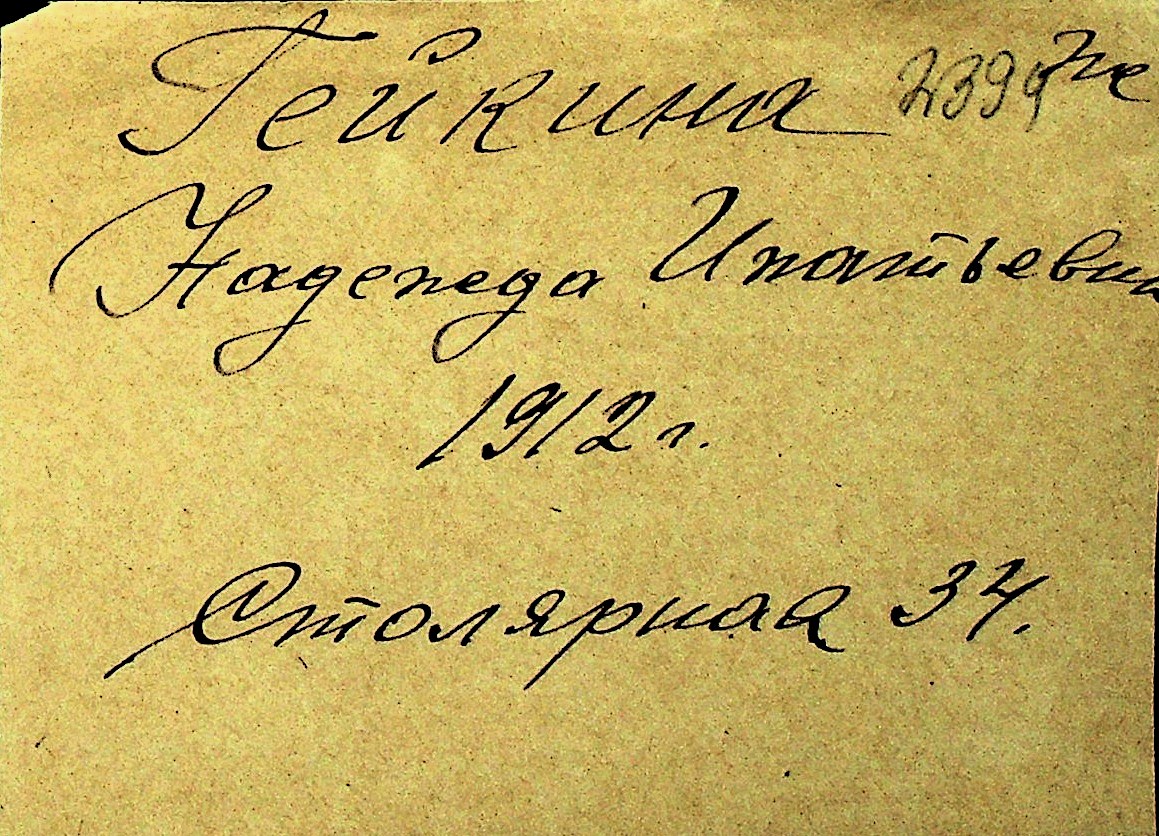 Гейкина 2399 же
Надежда Ипатьевна
1912 г.
Столярная 34.